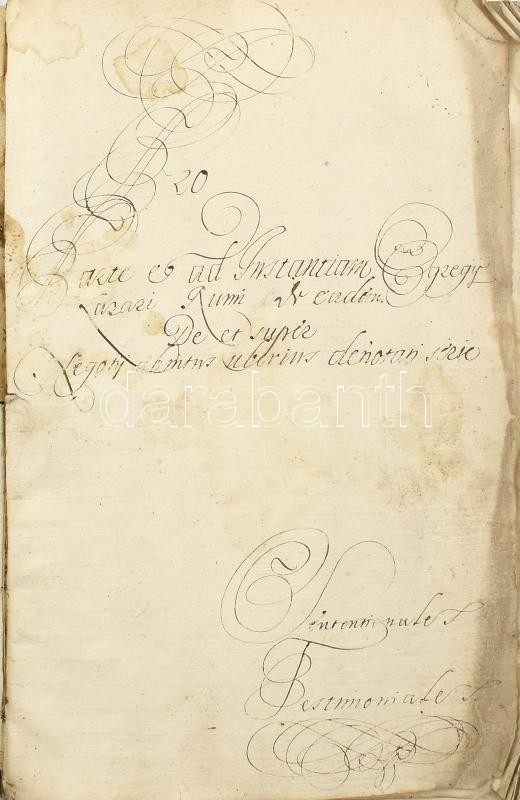 Pro
Parte et ad Instantiam Egregij
Lazari Rumi de eadem
De et super
Negotij abintus uberius denotati serie
darabanth
Sententionales
Testimoniales